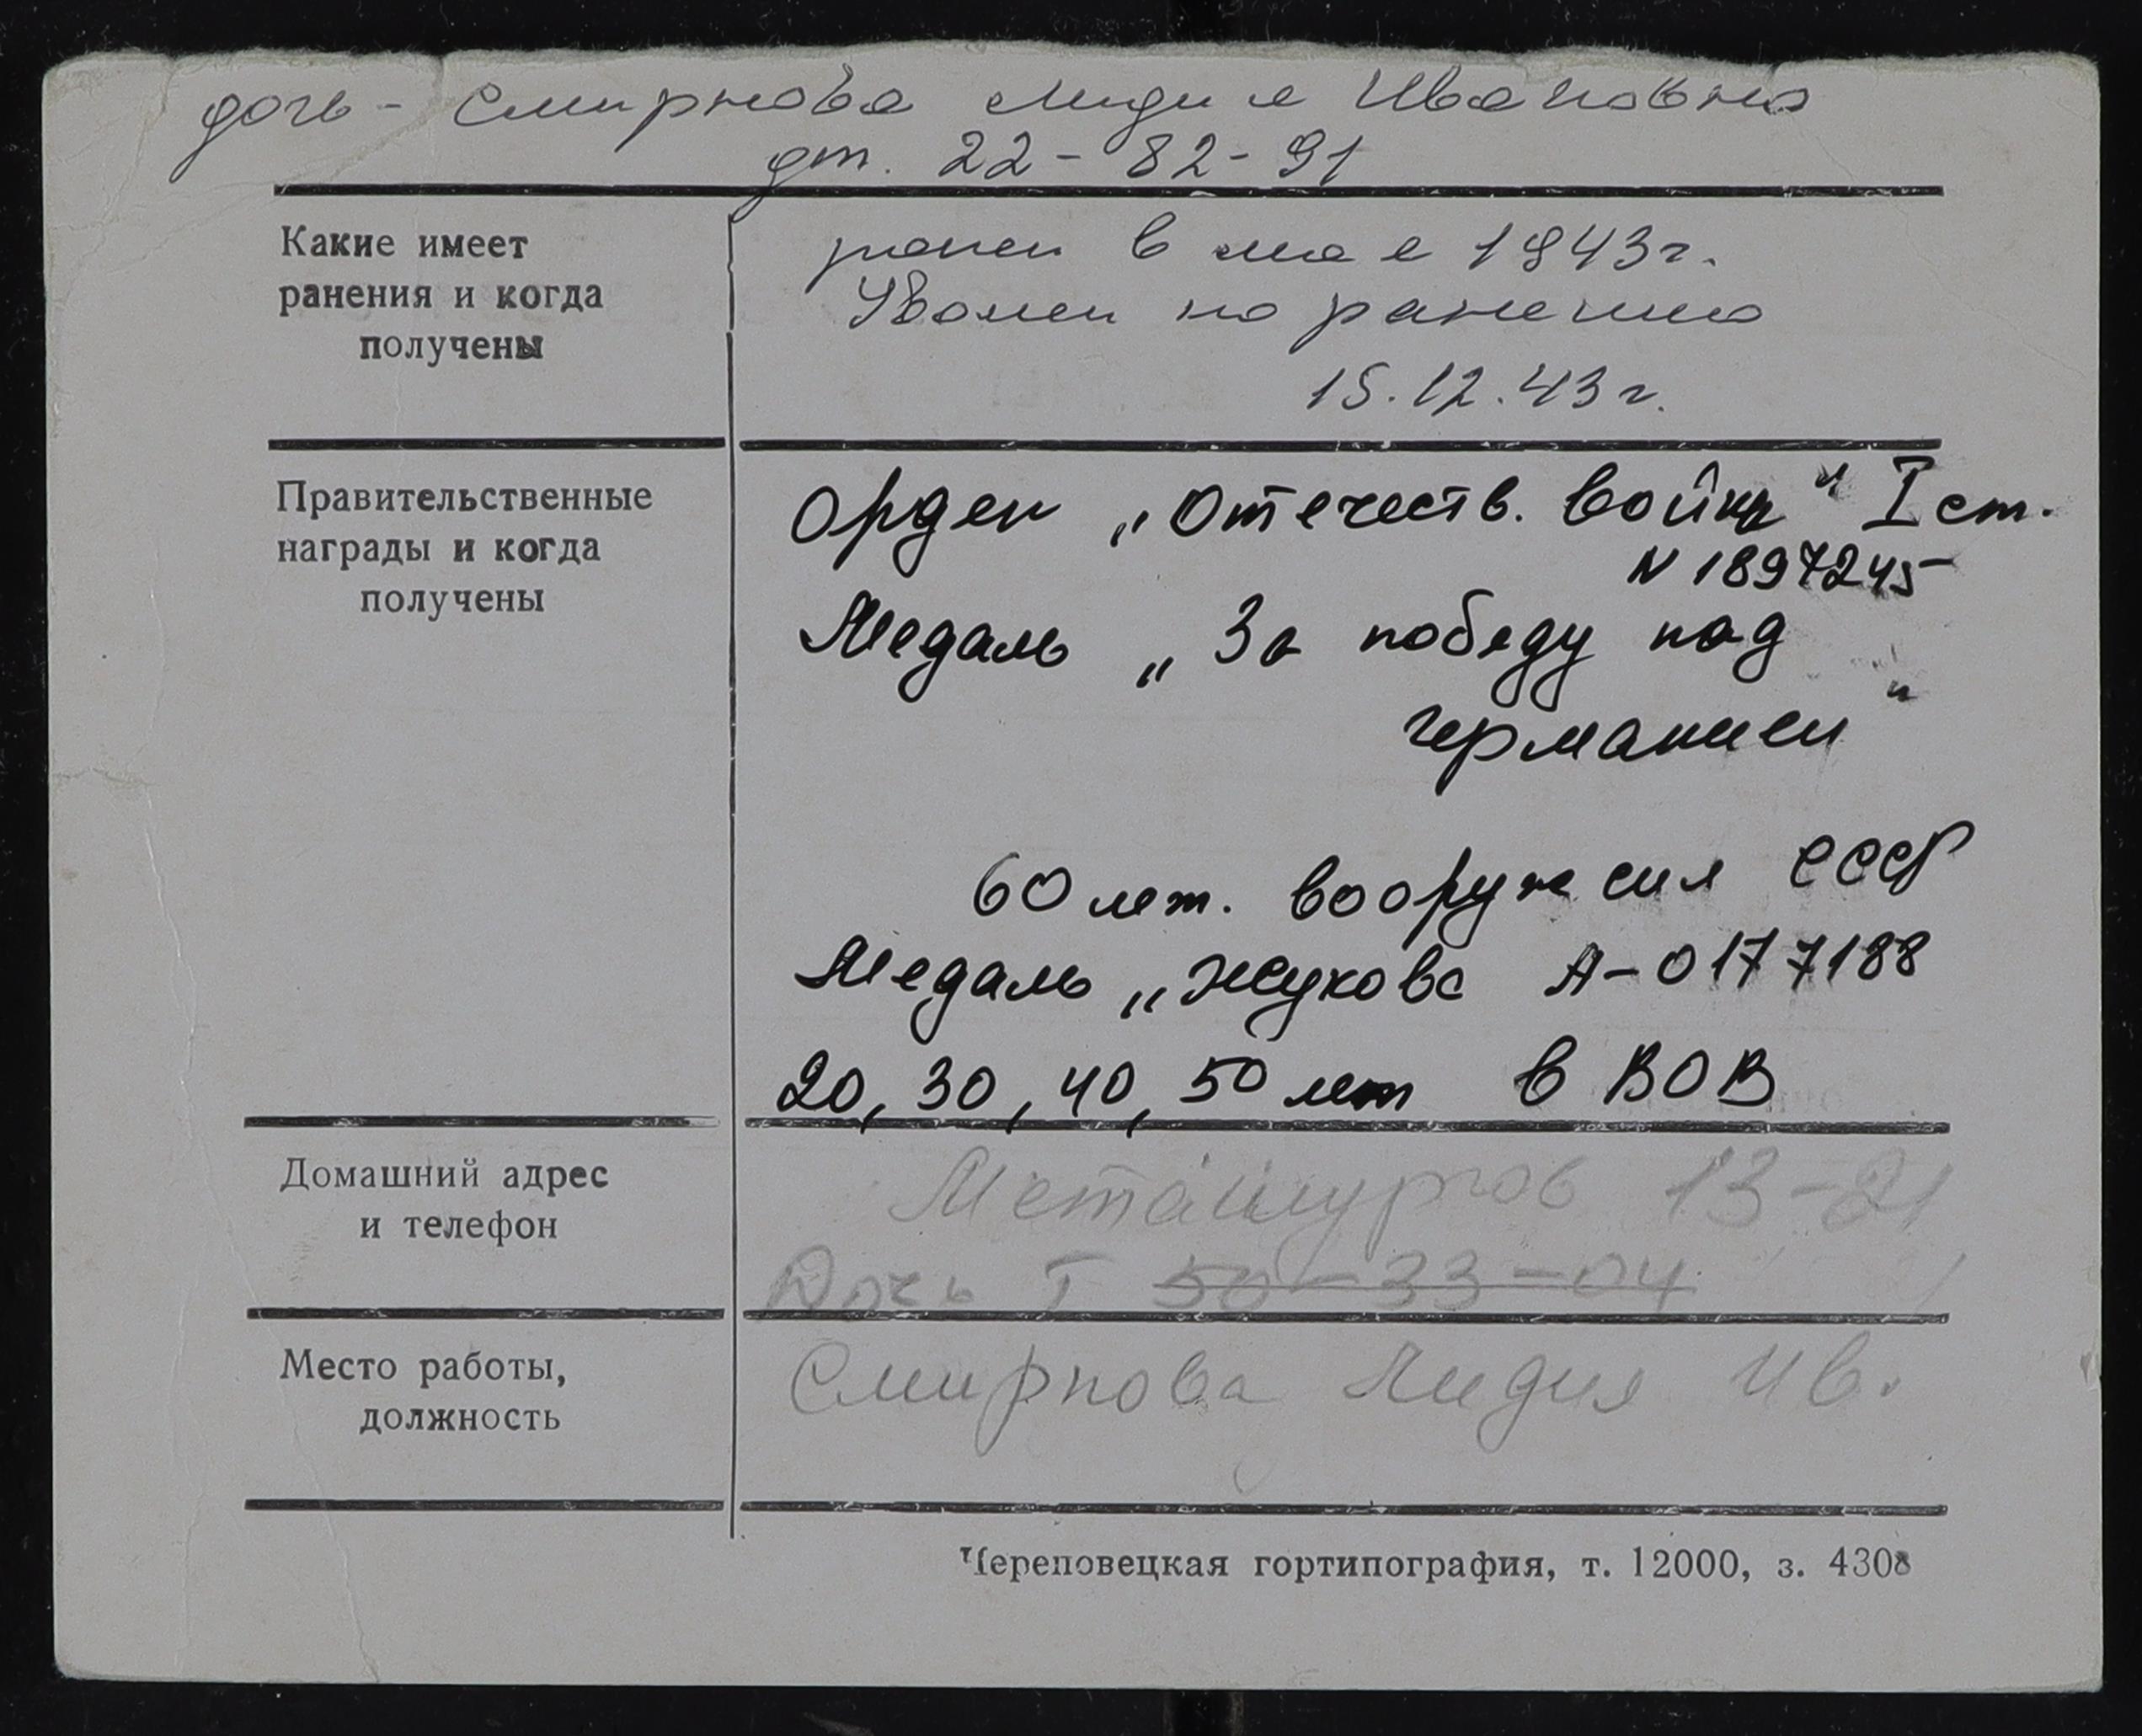 дочь - Смирнова Лидия Ивановна
дт. 22-82-91
Какие имеет
ранения и когда
получены
ранен в мае 1943г.
Уволен по ранению
15.12.43г.
Правительственные
награды и когда
получены
Орден „Отечеств. войны" I ст.
N 1897245
Медаль „За победу над
Германией"
60 лет. вооруж сил СССР
Медаль „Жукова А-0177188
20, 30, 40, 50 лет в ВОВ
Домашний адрес
и телефон
Металлургов 13-21
Дочь Т 50-33-04
Место работы,
должность
Смирнова Лидия Ив.
Череповецкая гортипография, т. 12000, з. 4308